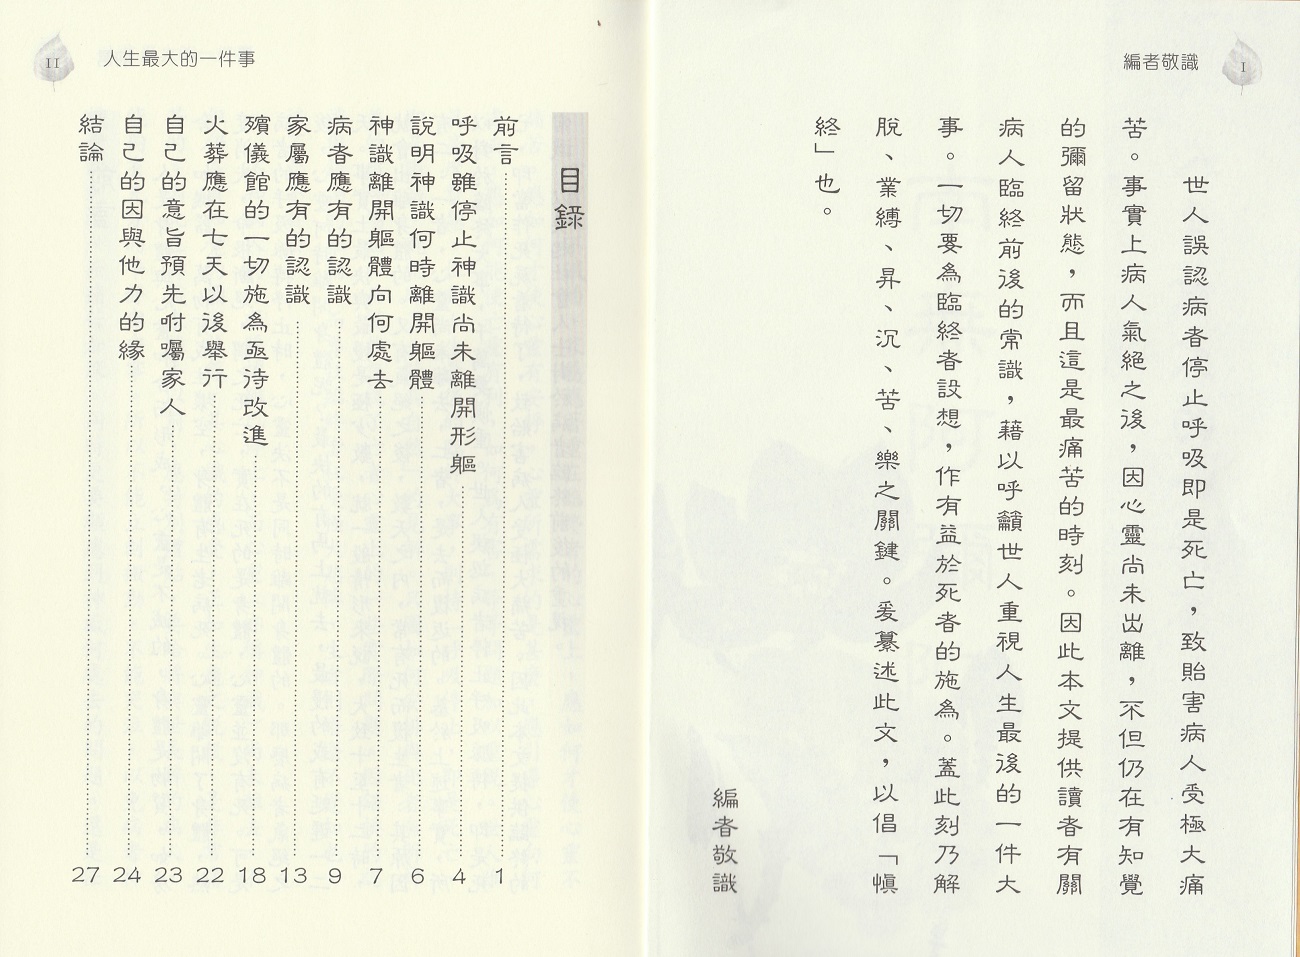 編者敬識
I
世人誤認病者停止呼吸即是死亡，致貽害病人受極大痛
苦。事實上病人氣絕之後，因心靈尚未出離，不但仍在有知覺
的彌留狀態，而且這是最痛苦的時刻。因此本文提供讀者有關
病人臨終前後的常識，藉以呼籲世人重視人生最後的一件大
事。一切要為臨終者設想，作有益於死者的施為。蓋此刻乃解
脫、業縛、昇、沉、苦、樂之關鍵。爰纂述此文，以倡「慎
終」也。
編者敬識
II
人生最大的一件事
目錄
前言 1
呼吸雖停止神識尚未離開形軀 4
說明神識何時離開軀體 6
神識離開軀體向何處去 7
病者應有的認識 9
家屬應有的認識 13
殯儀館的一切施為亟待改進 18
火葬應在七天以後舉行 22
自己的意旨預先咐囑家人 23
自己的因與他力的緣 24
結論 27